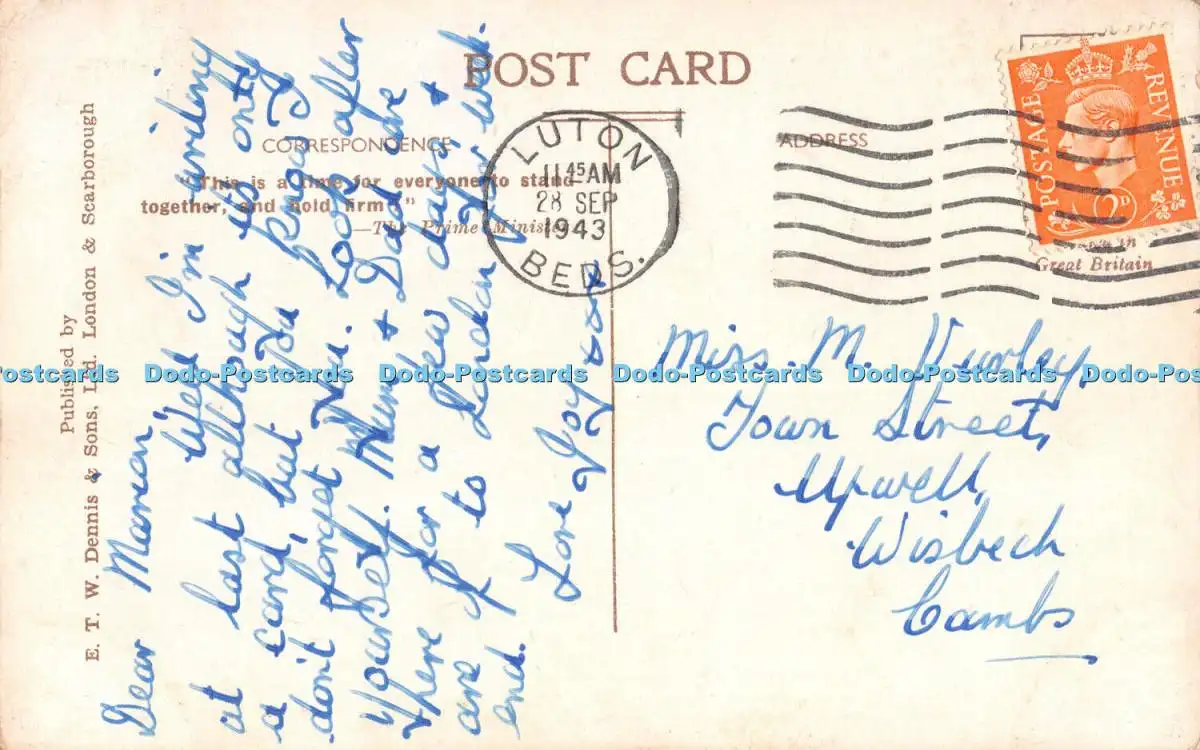 POST CARD
CORRESPONDENCE
ADDRESS
"This is a time for everyone to stand
together, and hold firm!"
—The Prime Minister
Published by
E. T. W. Dennis & Sons, Ltd. London & Scarborough
LUTON
11 45 AM
28 SEP
1943
BEDS.
POSTAGE
REVENUE
2D
in
Great Britain
Dear Marian,
Well I'm writing
at last although its only
a card, but you know I
don't forget you. Look after
yourself. Mum & Dad are
here for a few days &
are off to London for wek.
end.
Love Joy xxx
Miss. M. Hurley.
Town Street,
Upwell,
Wisbech
Cambs
Dodo-Postcards Dodo-Postcards Dodo-Postcards Dodo-Postcards Dodo-Postcards